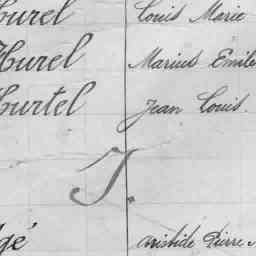 Hurel Louis Marie
Hurel Marius Emile
Hurtel Jean Louis.
J.
gé Aristide Pierre